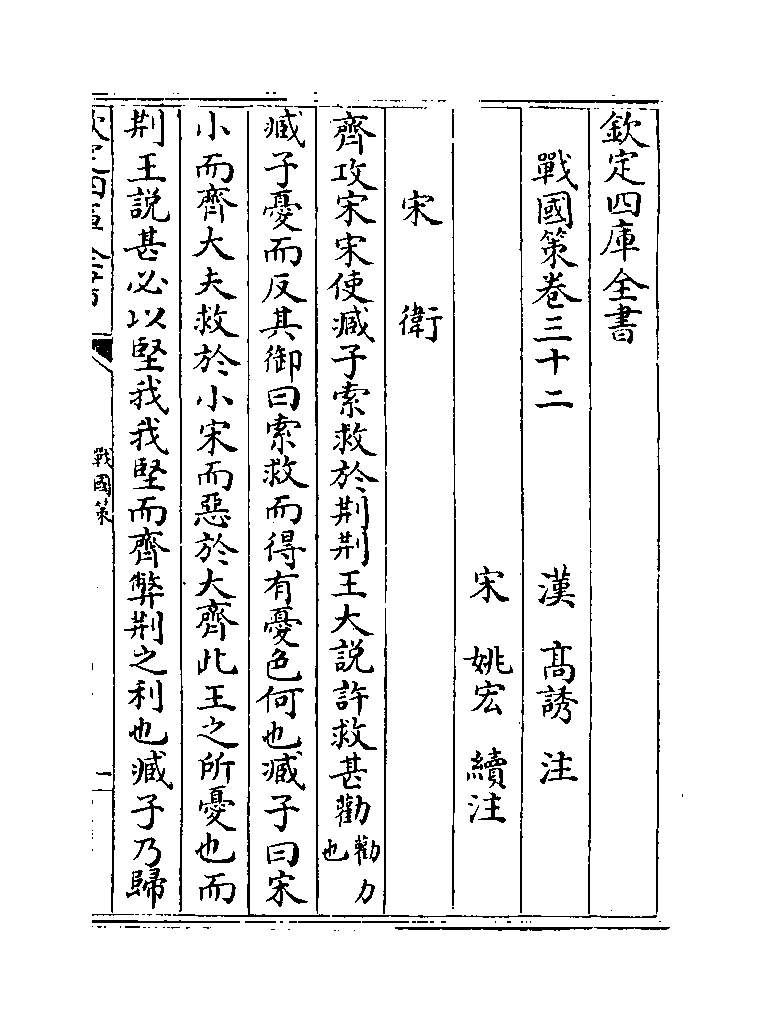 欽定四庫全書
戰國策卷三十二
漢 高誘 注
宋 姚宏 續注
宋 衛
齊攻宋宋使臧子索救於荆荆王大説許救甚勸勸力也
臧子憂而反其御曰索救而得有憂色何也臧子曰宋
小而齊大夫救於小宋而惡於大齊此王之所憂也而
荆王説甚必以堅我我堅而齊弊荆之利也臧子乃歸
欽定四庫全書
戰國策
一